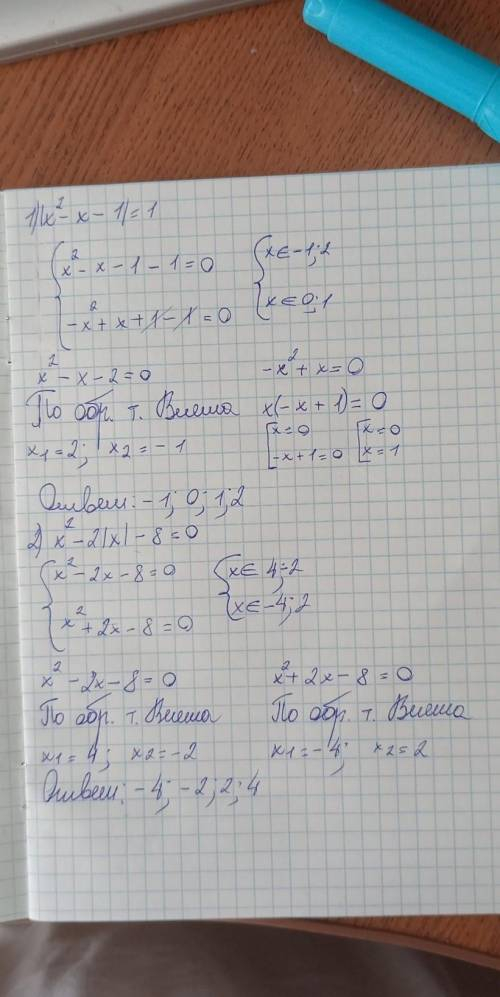 1) |x² - x - 1| = 1
{ x² - x - 1 - 1 = 0 { x ∈ -1; 2
{ -x² + x + 1 - 1 = 0 { x ∈ 0; 1
x² - x - 2 = 0 -x² + x = 0
По обр. т. Виета x(-x + 1) = 0
x1 = 2; x2 = -1 [ x = 0 [ x = 0
[ -x + 1 = 0 [ x = 1
Ответ: -1; 0; 1; 2
2) x² - 2|x| - 8 = 0
{ x² - 2x - 8 = 0 { x ∈ 4; -2
{ x² + 2x - 8 = 0 { x ∈ -4; 2
x² - 2x - 8 = 0 x² + 2x - 8 = 0
По обр. т. Виета По обр. т. Виета
x1 = 4; x2 = -2 x1 = -4; x2 = 2
Ответ: -4; -2; 2; 4